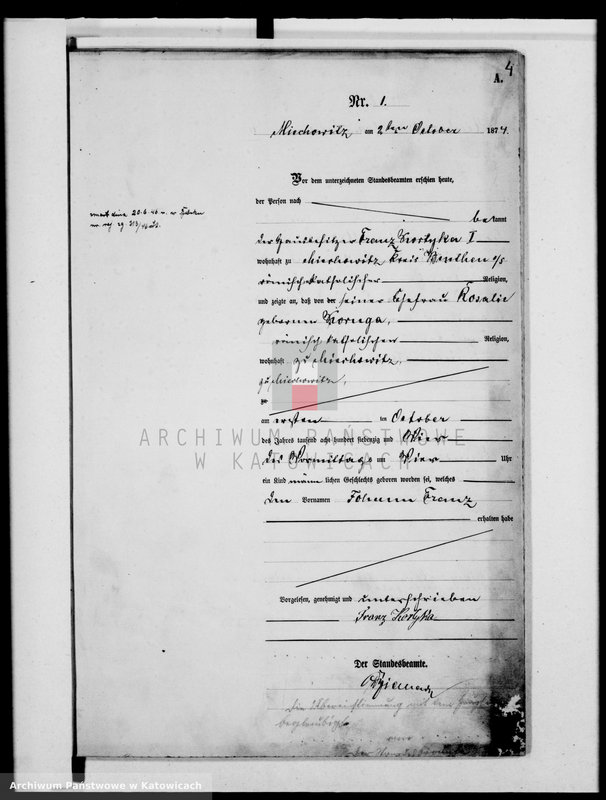 4
A.
Nr. 1.
Miechowitz am 2ten October 1874.
Vor dem unterzeichneten Standesbeamten erschien heute,
der Person nach
bekannt
der Hausbesitzer Franz Kortyka I
wohnhaft zu Miechowitz Kreis Beuthen o/s
römisch katholischer Religion,
und zeigte an, daß von der seiner Ehefrau Rosalie
geborenen
römisch katholischen Religion,
wohnhaft zu Miechowitz,
zu Miechowitz,
zu
am ersten ten October
des Jahres tausend acht hundert siebenzig und Vier
des Vormittags um Vier Uhr
ein Kind männlichen Geschlechts geboren worden sei, welches
den Vornamen Johann Franz
erhalten habe
Vorgelesen, genehmigt und unterschrieben
Franz Kortyka
Der Standesbeamte.
Die Übereinstimmung mit dem
beglaubigt
am
Der Standesbeamte
ARCHIWUM PAŃSTWOWE
W KATOWICACH
Archiwum Państwowe w Katowicach